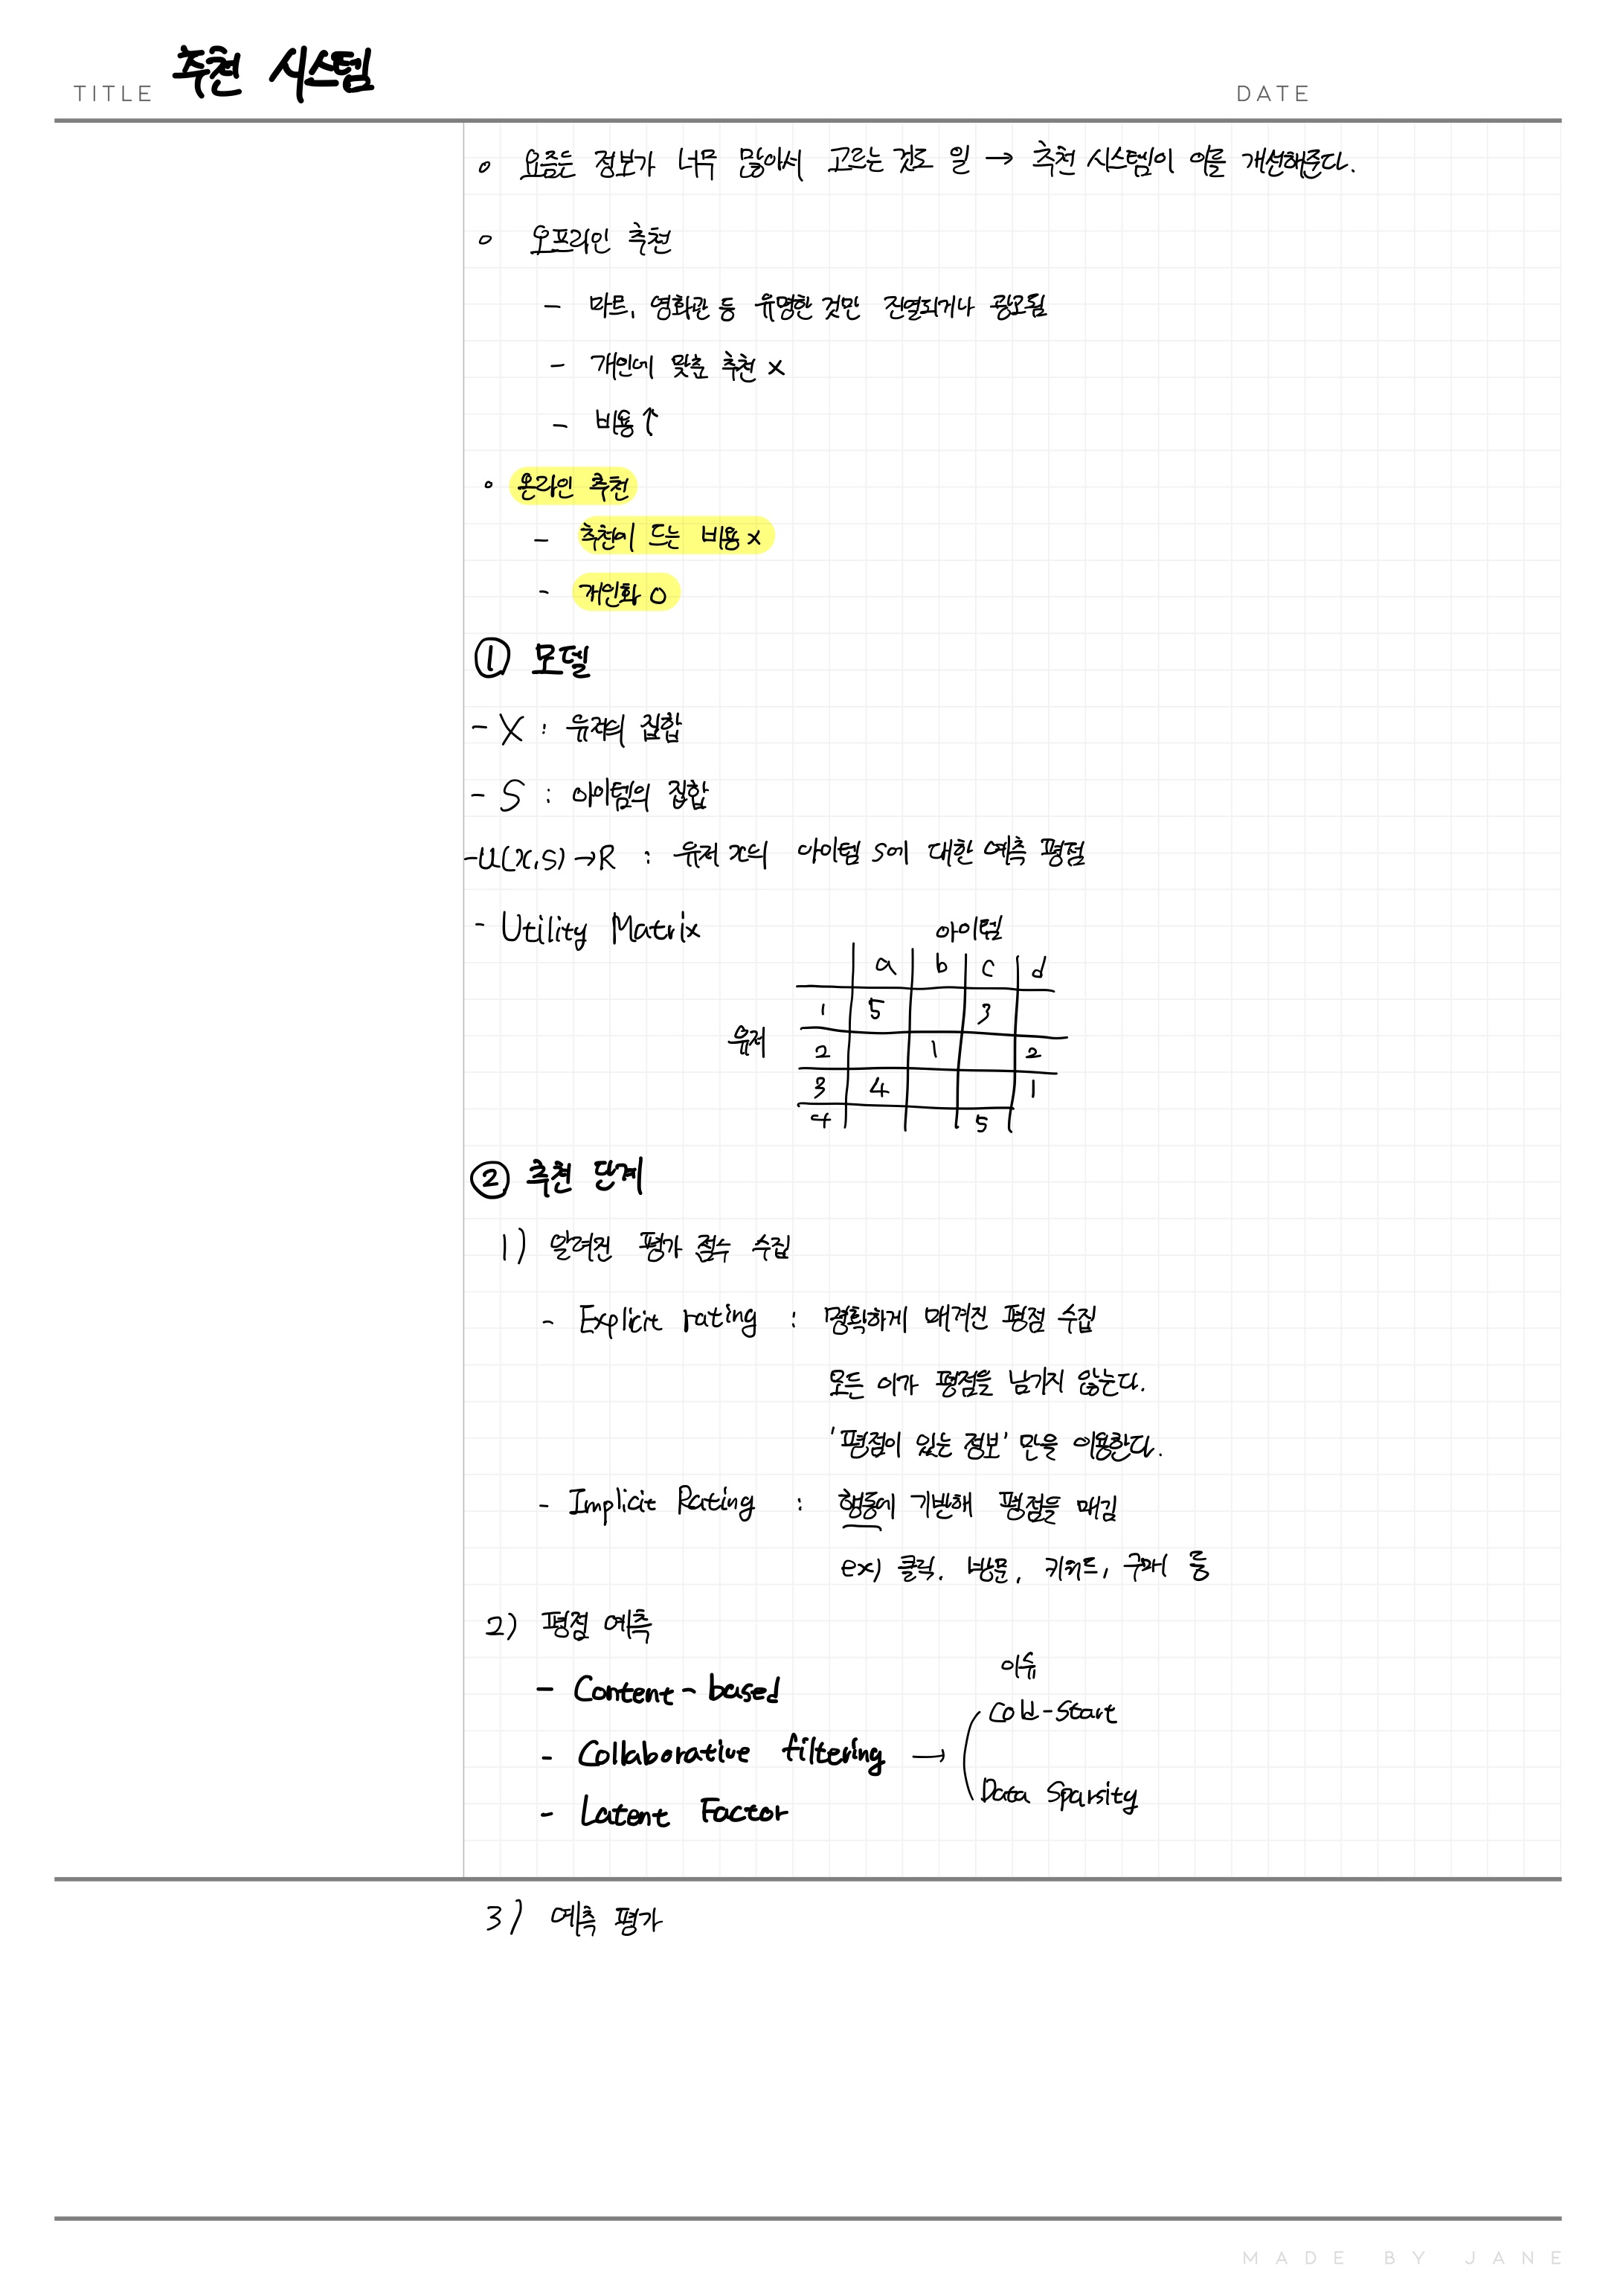 TITLE 추천 시스템
DATE
○ 요즘은 정보가 너무 많아서 고르는 것도 일 → 추천 시스템이 이를 개선해준다.
○ 오프라인 추천
- 마트, 영화관 등 유명한 것만 진열되거나 광고됨
- 개인에 맞춘 추천 x
- 비용 ↑
○ 온라인 추천
- 추천에 드는 비용 x
- 개인화 O
① 모델
- X : 유저의 집합
- S : 아이템의 집합
- U(x,s) → R : 유저 x의 아이템 s에 대한 예측 평점
- Utility Matrix
아이템
a b c d
1 5 3
유저
2 1 2
3 4 1
4 5
② 추천 단계
1) 알려진 평가 점수 수집
- Explicit rating : 명확하게 매겨진 평점 수집
모든 이가 평점을 남기지 않는다.
'평점이 있는 정보' 만을 이용한다.
- Implicit Rating : 행동에 기반해 평점을 매김
ex) 클릭, 방문, 키워드, 구매 등
2) 평점 예측
- Content-based
- Collaborative filtering →
이슈
Cold-Start
Data Sparsity
- Latent Factor
3) 예측 평가
MADE BY JANE